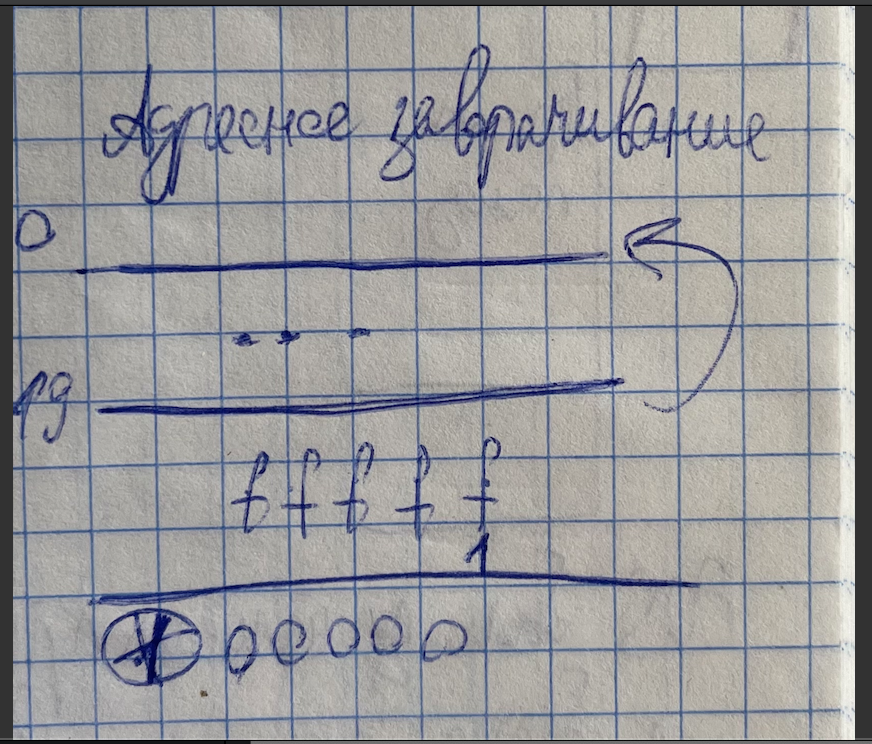 Адресное заворачивание
0
...
19
f f f f f
1
1 0 0 0 0 0